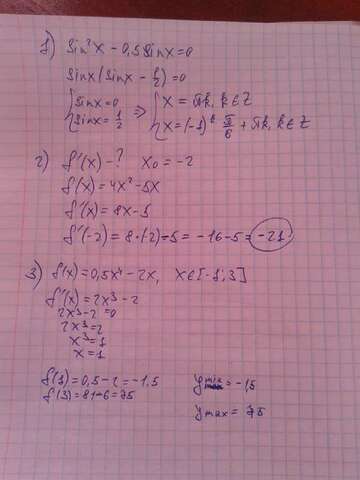 1) sin²x - 0,5 sinx = 0
sinx (sinx - 1/2) = 0
{ sinx = 0
sinx = 1/2 ⇒ { x = πk, k ∈ Z
x = (-1)ᵏ π/6 + πk, k ∈ Z
2) f'(x) - ? x₀ = -2
f(x) = 4x² - 5x
f'(x) = 8x - 5
f'(-2) = 8·(-2) - 5 = -16 - 5 = -21
3) f(x) = 0,5x⁴ - 2x, x ∈ [-1; 3]
f'(x) = 2x³ - 2
2x³ - 2 = 0
2x³ = 2
x³ = 1
x = 1
f(1) = 0,5 - 2 = -1.5
f(3) = 81 - 6 = 75
y min = -1,5
y max = 75